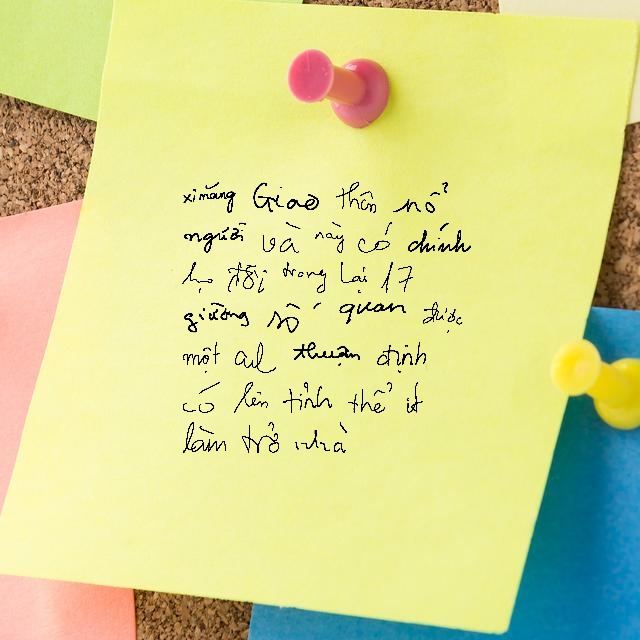 ximăng Giao thân nổ
người và này có chính
họ đội trong lại 17
giường số quan được
một thuận định
có lên tỉnh thể ít
làm trở nhà